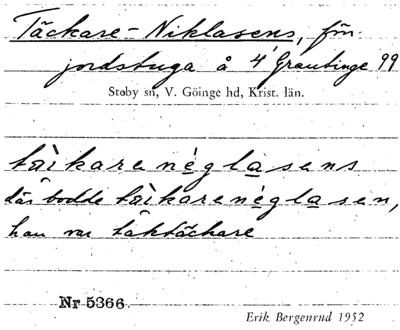 Täckare-Niklasens, förr
jordstuga å 4 Grantinge 99
Stoby sn, V. Göinge hd, Krist. län.
tàikarenéglasens
där bodde tàikarenéglasen,
han var taktäckare
Nr 5366.
Erik Bergenrud 1952